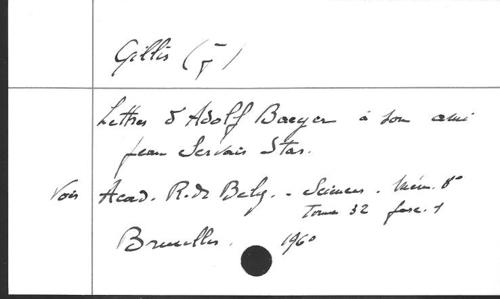 Gillis (J)
Lettres d'Adolf Baeyer à son ami
Jean Servais Stas.
Voir Acad. R. de Belg. - Sciences. Mém. 8°
Tome 32 fasc. 1
Bruxelles. 1960